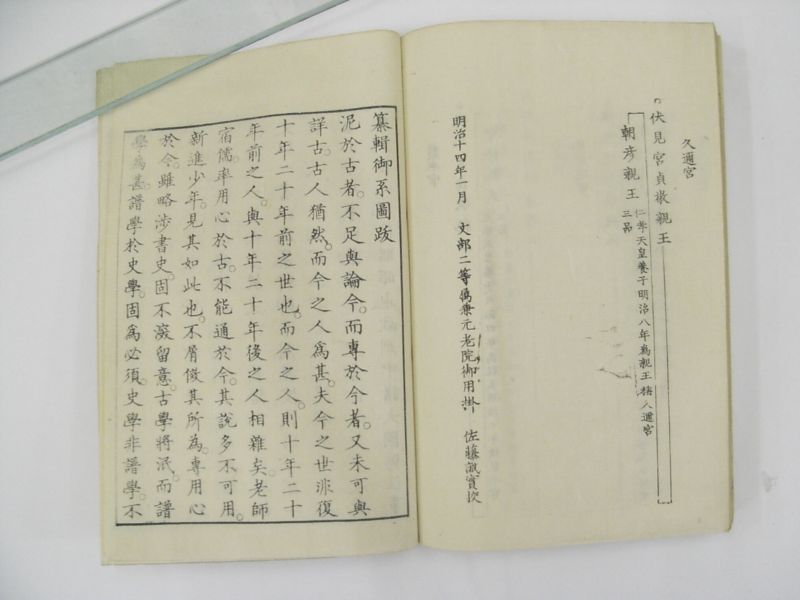 久邇宮
伏見宮貞敬親王
朝彦親王
仁孝天皇養子明治八年為親王称久邇宮
三品
明治十四年一月 文部二等属兼元老院御用掛 佐藤誠實挍
纂輯御系圖跋
泥於古者。不足與論今。而専於今者。又未可與
詳古。古人猶然。而今之人為甚。夫今之世非復
十年二十年前之世也。而今之人。則十年二十
年前之人。與十年二十年後之人相雜矣。老師
宿儒。率用心於古。不能通於今。其說多不可用。
新進少年。見其如此也。不屑傚其所為。専用心
於今。雖略涉書史。固不深留意。古學將泯。而譜
學為甚。譜學於史學。固為必須。史學非譜學。不